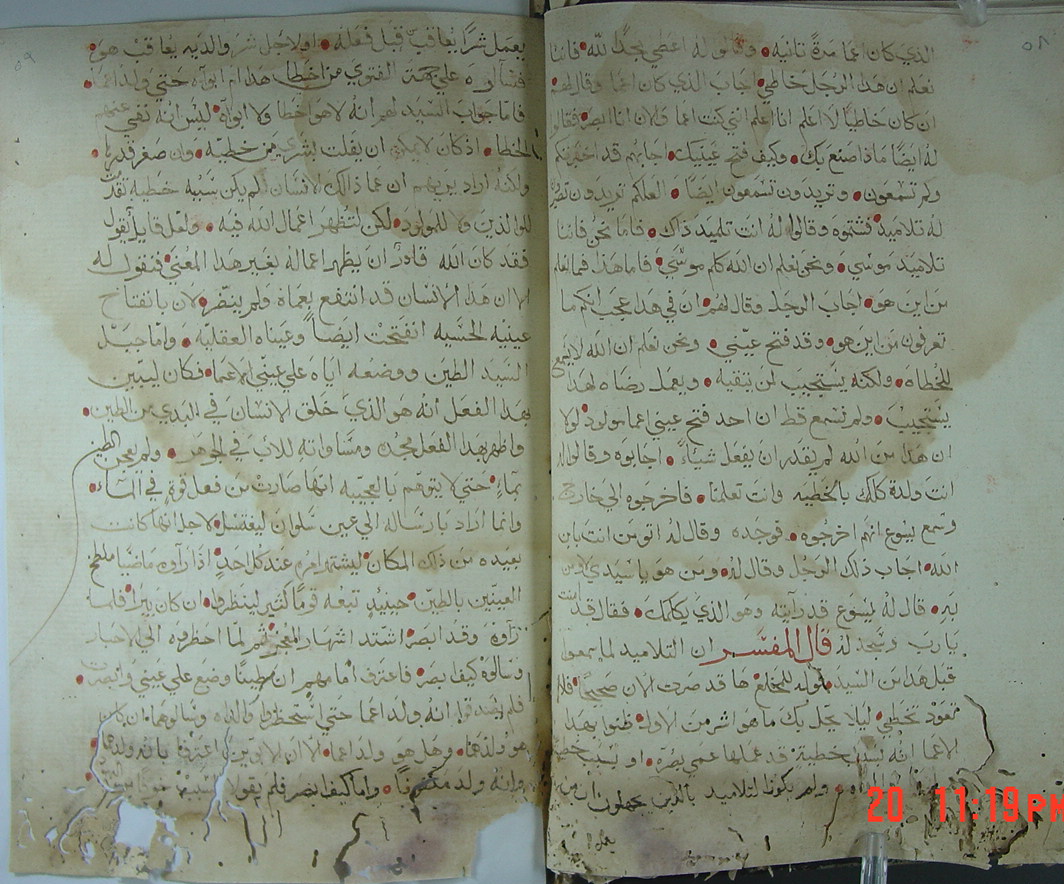 ٥٨
الذي كان اعما مرةً تانيه • وقالوا له اعطي مجدًا لله • فاننا
نعلم ان هدا الرجل خاطي • اجاب الذي كان اعما وقال لهم
ان كان خاطيًا لا اعلم انا اعلم انني كنت اعما والان انا ابصر • فقالوا
له ايضًا ماذا صنع بك • وكيف فتح عينيك • اجابهم قد اخبرتكم
ولم تسمعون • وتريدون تسمعون ايضًا • العلكم تريدون تصيروا
له تلاميد • فشتموه وقالوا له انت تلميد ذاك • فاما نحن فاننا
تلاميد موسي • ونحن نعلم ان الله كلم موسي • فاما هدا فما نعلم
من اين هو • اجاب الرجل وقال لهم ان في هدا عجب انكم ما
تعرفون من اين هو • وقد فتح عيني • ونحن نعلم ان الله لا يسمع
للخطاه • ولكنه يستجيب لمن يتقيه • ويعمل رضاه لهدا
يستجيب • ولم نسمع قط ان احد فتح عيني اعما مولود • لولا
ان هدا من الله لم يقدر ان يفعل شياً • اجابوه وقالوا له
انت ولدة كلك بالخطيه وانت تعلمنا • فاخرجوه الي خارج
وسمع يسوع انهم اخرجوه • فوجده وقال له اتومن انت بابن
الله • اجاب ذلك الرجل وقال له • ومن هو يا سيدي لاومن
به • قال له يسوع قد رايته وهو الذي يكلمك • فقال قد امنت
يا رب وسجد له قال المفسر ان التلاميد لما سمعوا
قبل هدا من السيد بقوله للمخلع ها قد صرت الان صحيحًا • فلا
تعود تخطي • ليلا يحل بك ما هو اشر من الاول • ظنوا بهدا
الاعما انه بسبب خطية قد عملها عمي بصره • او بسبب خطية
ولم يكونوا التلاميد
٥٩
يعمل شرًا يعاقب قبل فعله • او لاجل شر والديه يعاقب هو •
فسالوه علي جهة الفتوي من اخطا هدا ام ابواه حتي ولد اعما •
فاما جواب السيد لهم انه لا هو اخطا ولا ابواه • ليس انه نفي عنهم
الخطا • اذ كان لا يمكن ان يفلت بشري من خطيه • وان صغر قدرها •
ولكنه اراد يريهم ان عما ذالك الانسان لم يكن سببه خطيه تقدمت
للوالدين ولا للمولود • لكن لتظهر اعمال الله فيه • ولعل قايل يقول
فقد كان الله قادرًا ان يظهر اعماله بغير هدا المعني • فنقول له
الا ان هدا الانسان قد انتفع بعماه ولم ينضر • لان بانفتاح
عينيه الحسيه انفتحت ايضاً وعيناه العقليه • واما جبل
السيد الطين ووضعه اياه علي عيني الاعما • فكان ليبين
بهدا الفعل انه هو الذي خلق الانسان في البدي من الطين •
واظهر بهدا الفعل مجده ومساواته للاب في الجوهر • ولم يعجن الطين
بماء • حتي لا يتوهم بالعجيبه انها صارت من فعل قوة في الماء •
وانما اراد بارساله الي عين سلوان ليغتسل • لاجل انها كانت
بعيده من ذاك المكان • ليشتهر امره عند كل احدٍ • اذا راوه ماضيًا ملطخ
العينين بالطين • حينيدٍ تبعه قومًا كثير لينظروا • ان كان يبرا • فلما
راوه وقد ابصر • اشتد اشهار المعجز • ثم لما احظروه الي الاحبار
وسالوه كيف ابصر • فاعترف امامهم ان طينًا وضع علي عيني وابصرت •
فلم يصدقوا انه ولد اعما حتي استحظروا والداه وسالوهما • ان كان
هو ولدهما • وهل هو ولد اعما • الا ان الابوين اعترفا بانه ولدهما
وانه ولد مكفوفًا • واما كيف ابصر فلم يقولا
20 11:19 PM